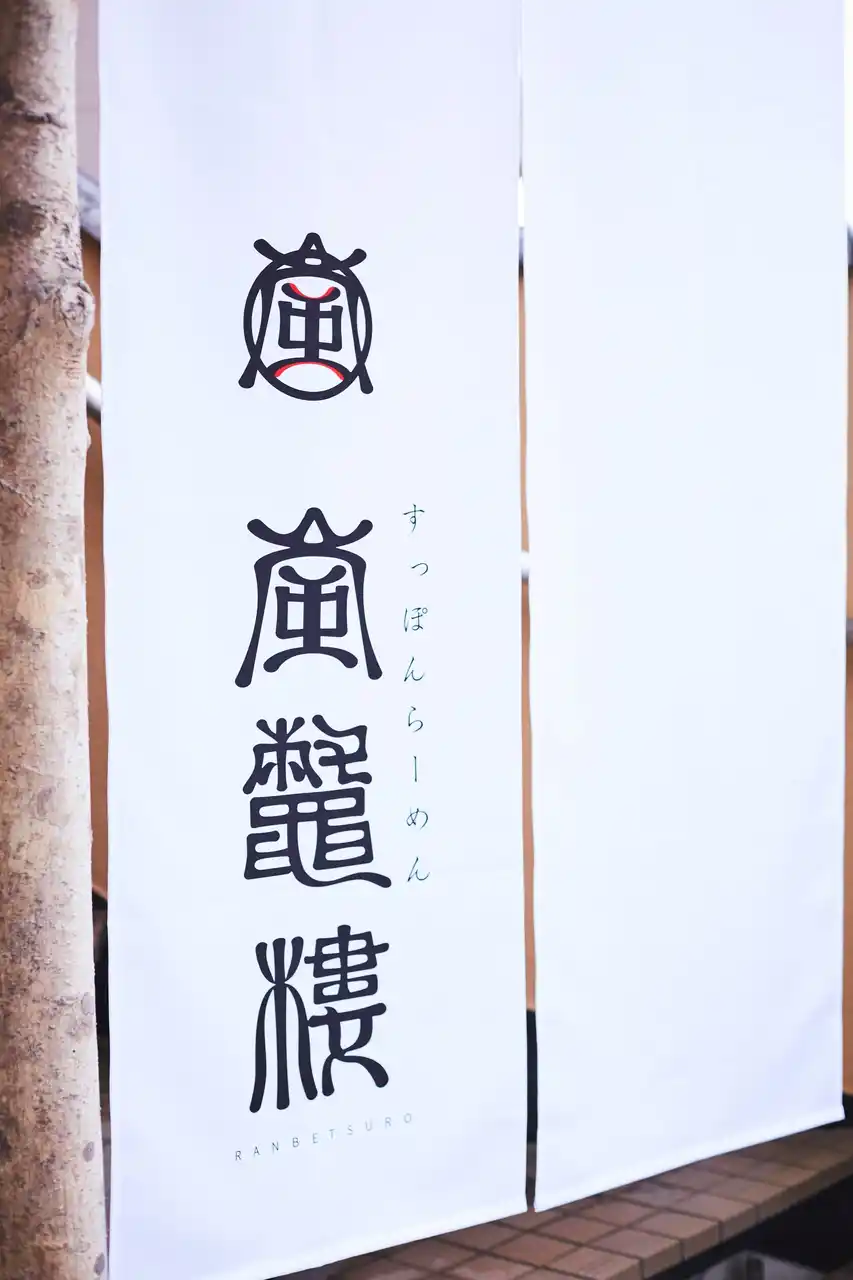 嵐
すっぽんらーめん
嵐鼈樓
RANBETSURO